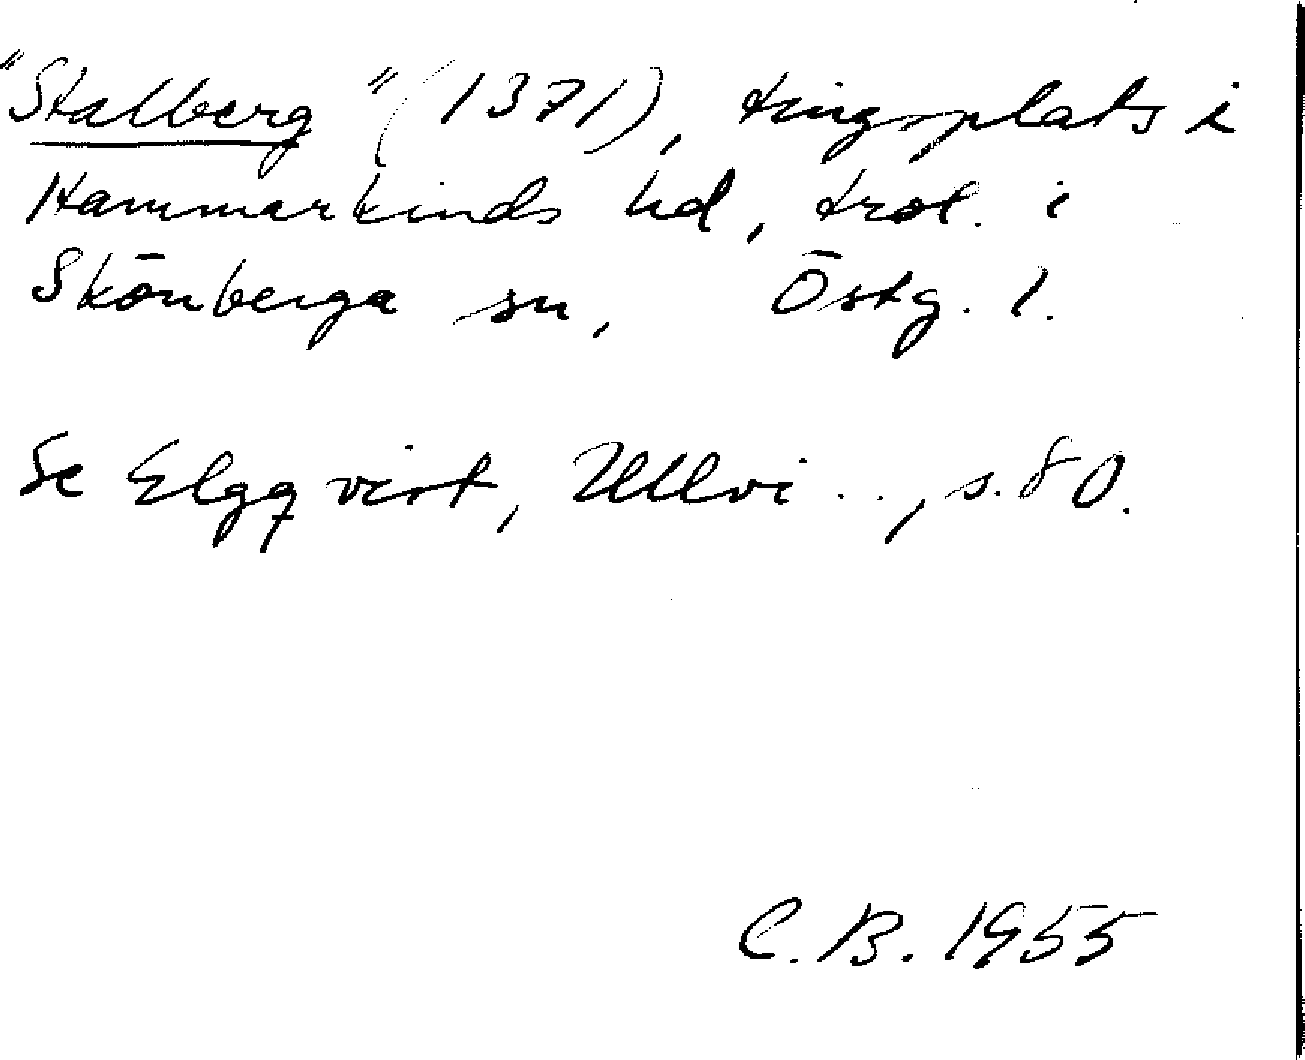 "Stalberg" (1371), tingsplats i
Hammarkinds hd, trol. i
Skönberga sn, Östg. l.
Se Elgqvist, Ullvi .., s. 80.
C. B. 1955